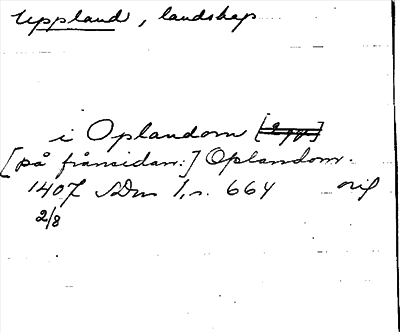 Uppland, landskap
i Oplandom
[på frånsidan:] Oplandom.
1407 SDns 1, s. 664 orig
2/8